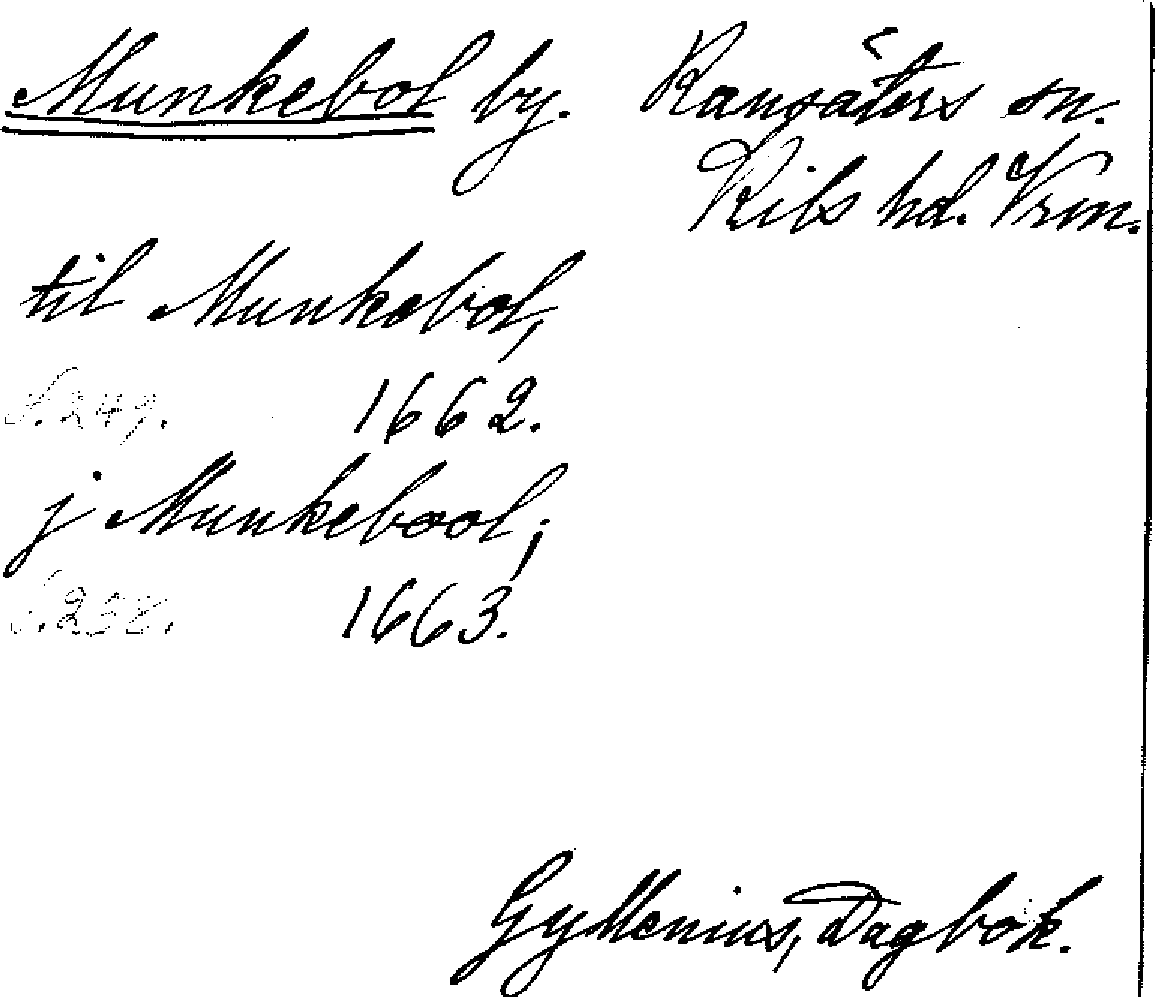 Munkebol by. Ransäters sn.
Kils hd. Vrm.
til Munkebol,
S. 249. 1662.
j Munkebool,
S. 258. 1663.
Gyllenius, Dagbok.